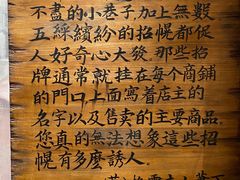 不盡的小巷子,加上無數
五綵繽紛的招幌都促
人好奇心大發.那些招
牌通常就挂在每个商鋪
的門口上面寫着店主的
名字以及售卖的主要商品,
您真的無法想象這些招
幌有多麽誘人.